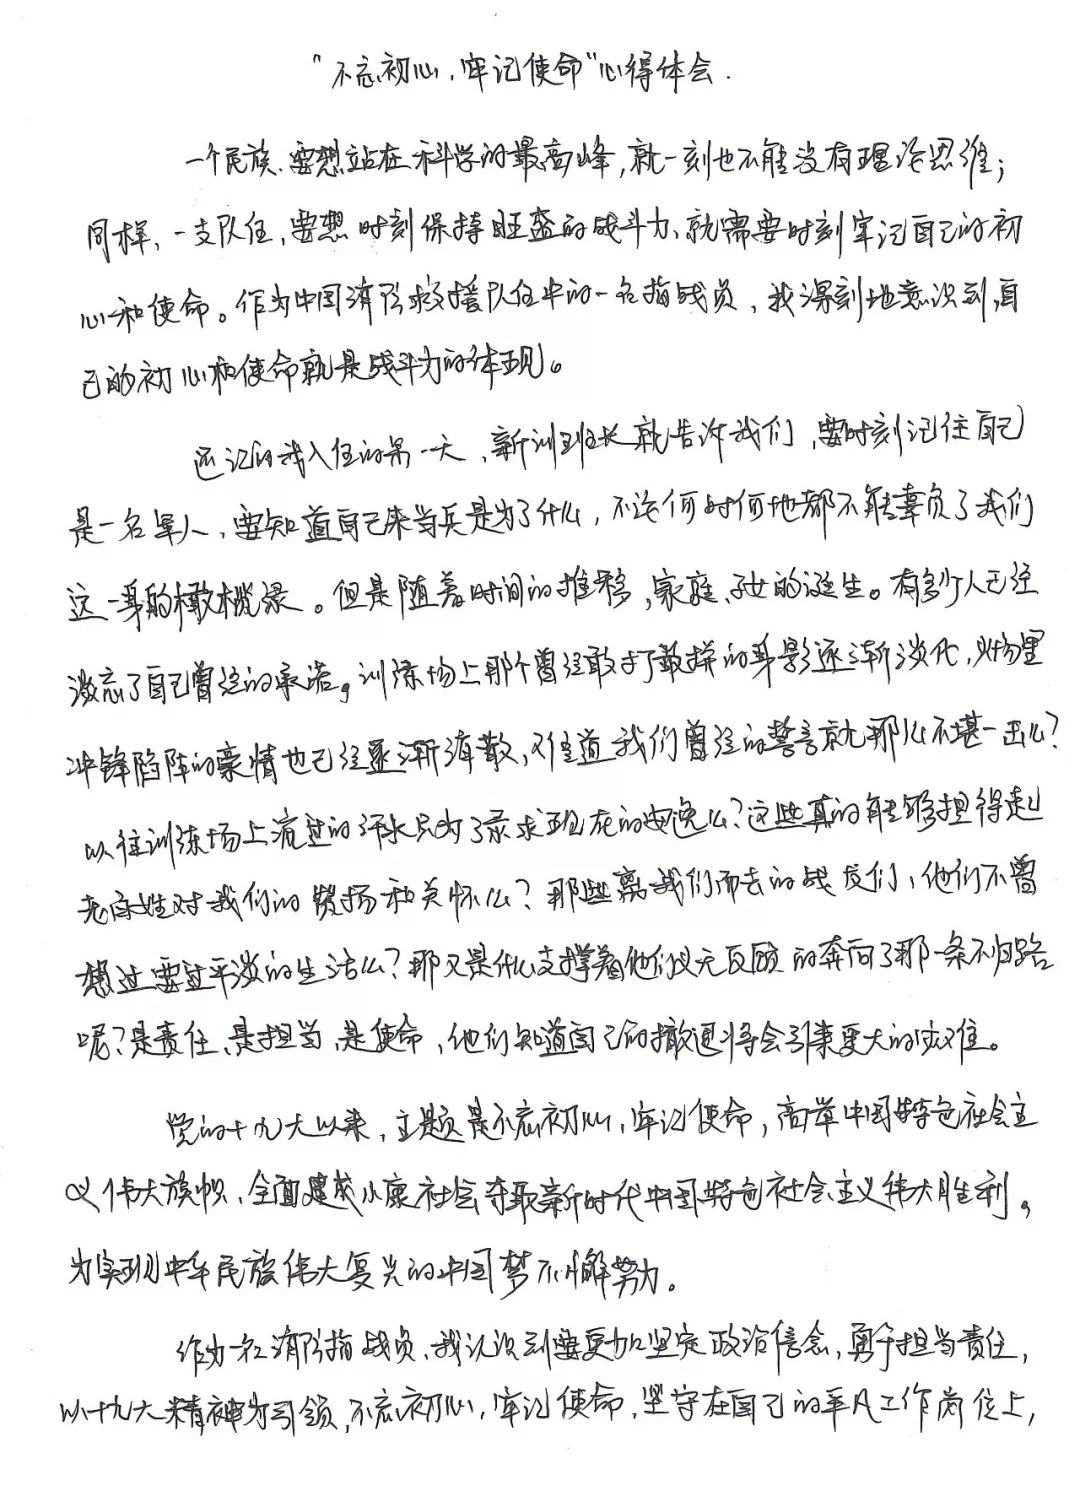 “不忘初心,牢记使命”心得体会.
一个民族,要想站在科学的最高峰,就一刻也不能没有理论思维;
同样,一支队伍,要想时刻保持旺盛的战斗力、就需要时刻牢记自己的初
心和使命。作为中国消防救援队伍中的一名指战员,我深刻地意识到,自
己的初心和使命就是战斗力的体现。
还记的我入伍的第一天,新训班长就告诉我们,要时刻记住自己
是一名军人,要知道自己来当兵是为了什么,不论何时何地都不能辜负了我们
这一身的橄榄绿。但是随着时间的推移,家庭、子女的诞生。有多少人已经
淡忘了自己曾经的承诺,训练场上那个曾经敢打敢拼的身影逐渐淡化,火场里
冲锋陷阵的豪情也已经逐渐消散,难道我们曾经的誓言就那么不堪一击么?
以往训练场上流过的汗水只为了求现在的安逸么?这些真的能够担得起
老百姓对我们的赞扬和关怀么?那些离我们而去的战友们,他们不曾
想过要过平淡的生活么?那又是什么支撑着他们义无反顾的奔向了那一条不归路
呢?是责任、是担当,是使命,他们知道自己的撤退将会引来更大的灾难。
党的十九大以来,主题是不忘初心,牢记使命,高举中国特色社会主
义伟大旗帜,全面建成小康社会夺取新时代中国特色社会主义伟大胜利,
为实现中华民族伟大复兴的中国梦不懈努力。
作为一名消防指战员,我认识到要更加坚定政治信念,勇于担当责任,
以十九大精神为引领,不忘初心,牢记使命,坚守在自己的平凡工作岗位上,